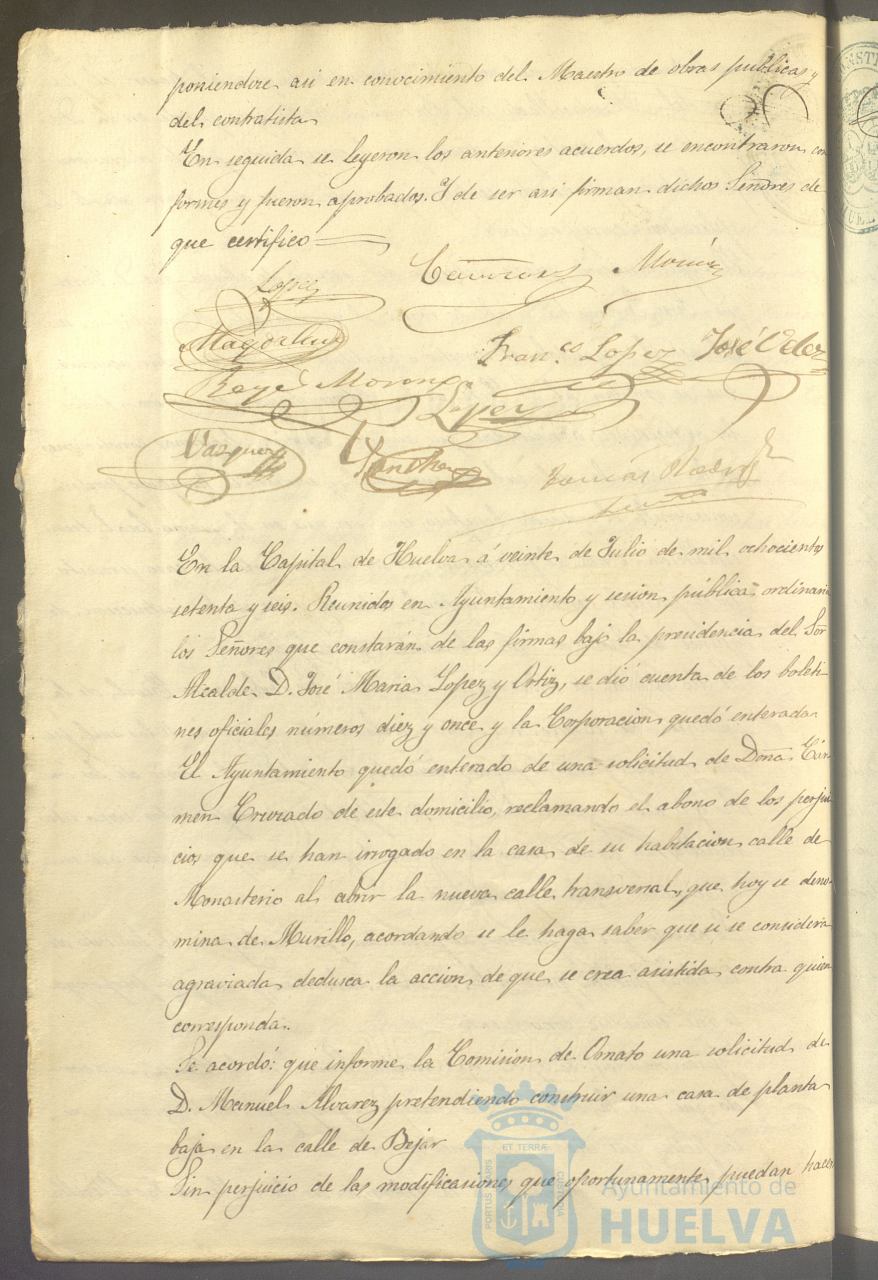 poniendose asi en conocimiento del Maestro de obras publicas y
del contratista
En seguida se leyeron los anteriores acuerdos, se encontraron con
formes y fueron aprobados. Y de ser asi firman dichos Señores de
que certifico
Lopez
Franco. Lopez José Velez
Lopez
Vazquez Sanchez
Tomás
En la Capital de Huelva á veinte de Julio de mil ochocientos
setenta y seis. Reunidos en Ayuntamiento y sesion pública ordinaria
los Señores que constarán de las firmas bajo la presidencia del Sor
Alcalde D. José Maria Lopez y Ortiz, se dió cuenta de los boleti-
nes oficiales números diez y once y la Corporacion quedó enterada.
El Ayuntamiento quedó enterado de una solicitud de Doña Cár-
men Cruzado de este domicilio, reclamando el abono de los perjui
cios que se han irrogado en la casa de su habitacion calle de
Monasterio al abrir la nueva calle transversal, que hoy se deno-
mina de Murillo, acordando se le haga saber que si se considera
agraviada dedusca la accion de que se crea asistida contra quien
corresponda.
Se acordó: que informe la Comision de Ornato una solicitud de
D. Manuel Alvarez pretendiendo construir una casa de planta
baja en la calle de Bejar
Sin perjuicio de las modificasiones que oportunamente puedan hacer
PORTUS MARIS ET TERRÆ CUSTODIA
Ayuntamiento de
HUELVA